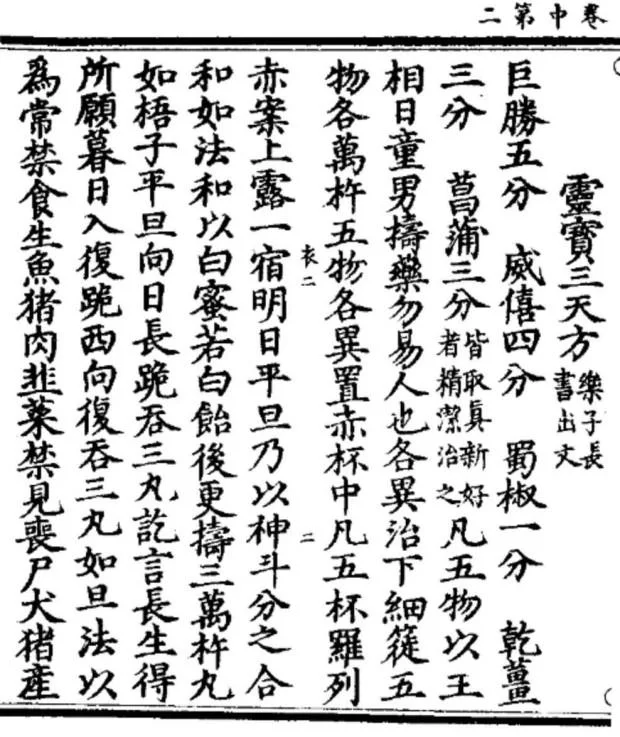 卷中第二
靈寶三天方樂子長書出文
巨勝五分 威僖四分 蜀椒一分 乾薑
三分 菖蒲三分皆取真新好者精潔治之凡五物以王
相日童男擣藥勿易人也各異治下細簁五
物各萬杵五物各異置赤杯中凡五杯羅列
衣二 二
赤案上露一宿明日平旦乃以神斗分之合
和如法和以白蜜若白飴後更擣三萬杵丸
如梧子平旦向日長跪吞三丸訖言長生得
所願暮日入復跪西向復吞三丸如旦法以
為常禁食生魚猪肉韭菜禁見喪尸犬猪產